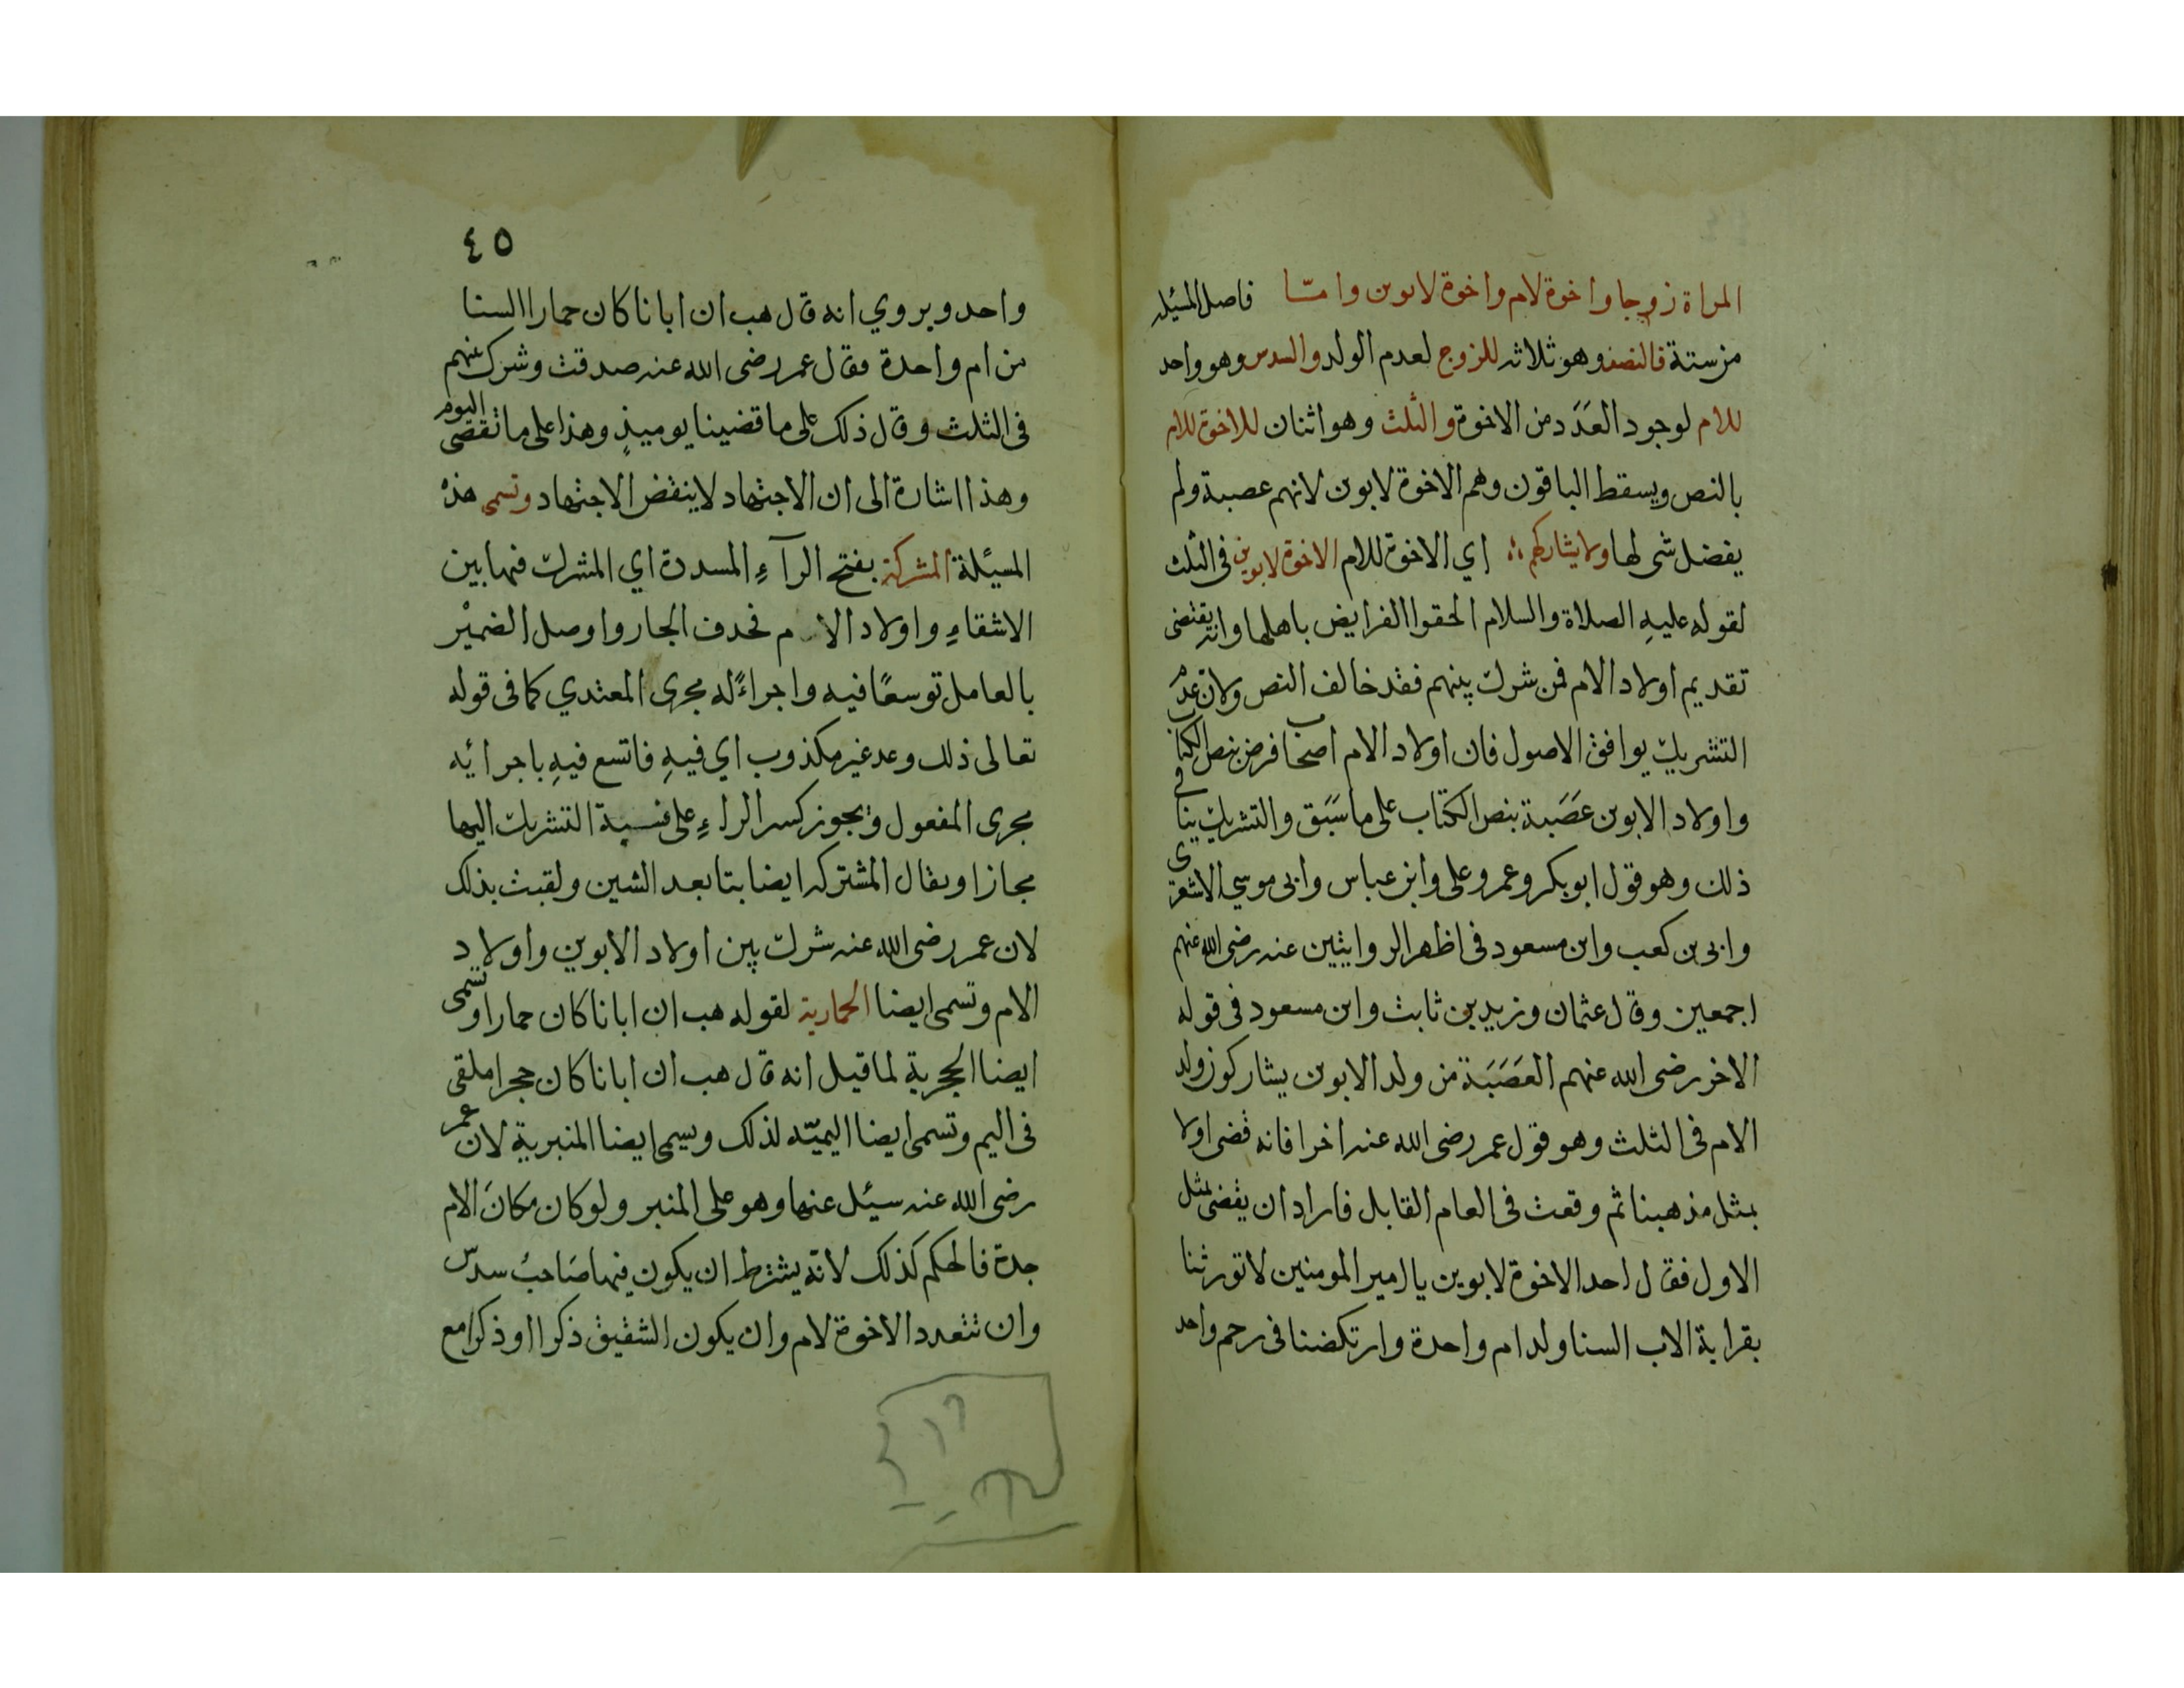 المراة زوجا واخوة لام واخوة لابوين وامّا فاصل المسئلة
من ستة فالنصف وهو ثلاثة للزوج لعدم الولد والسدس وهو واحد
للام لوجود العَدَد من الاخوة والثلث وهو اثنان للاخوة للام
بالنص ويسقط الباقون وهم الاخوة لابوين لانهم عصبة ولم
يفضل شى لها ولا يشاركهم اي الاخوة للام الاخوة لابوين فى الثلث
لقوله عليهِ الصلاة والسلام الحقوا الفرايض باهلها وانه يقتضى
تقديم اولاد الام فمن شرك بينهم فقد خالف النص ولان عدم
التشريك يوافق الاصول فان اولاد الام اصحاب فرض بنص الكتاب
واولاد الابوين عَصَبة بنص الكتاب على ما سَبَق والتشريك ينافى
ذلك وهو قول ابو بكر وعمر وعلى وابن عباس وابى موسي الاشعرى
وابى بن كعب وابن مسعود فى اظهر الروايتين عنه رضى الله عنهم
اجمعين وقال عثمان وزيد بن ثابت وابن مسعود فى قوله
الاخر رضى الله عنهم العَصَبَة من ولد الابوين يشاركون ولد
الام فى الثلث وهو قول عمر رضى الله عنه اخرا فانه قضى اولا
بمثل مذهبنا ثم وقعت فى العام القابل فاراد ان يقضى بمثل
الاول فقال احد الاخوة لابوين يا امير المومنين لا تورثنا
بقرابة الاب السنا ولد ام واحدة وارتكضنا فى رحم واحد
٤٥
واحد ويروي انه قال هب ان ابانا كان حمارا السنا
من ام واحدة فقال عمر رضى الله عنه صدقت وشرك بينهم
فى الثلث وقال ذلك على ما قضينا يوميذٍ وهذا على ما نقضى اليوم
وهذا اشارة الى ان الاجتهاد لا ينقض الاجتهاد وتسمى هذه
المسيئلة المشركة بفتح الرآءِ المسددة اي المشرك فيها بين
الاشقاءِ واولاد الام فحدف الجار واوصل الضميْر
بالعامل توسعًا فيه واجراءً له مجرى المعتدي كما فى قوله
تعالى ذلك وعد غير مكذوب اي فيهِ فاتسع فيهِ باجرائه
مجرى المفعول ويجوز كسر الراءِ على نسبة التشريك اليها
مجازا ويقال المشتركه ايضا بتا بعد الشين ولقبت بذلك
لان عمر رضى الله عنه شرك بين اولاد الابوين واولاد
الام وتسمى ايضا الحمارية لقوله هب ان ابانا كان حمارا وتسمى
ايضا الحجرية لما قيل انه قال هب ان ابانا كان حجرا ملقى
فى اليم وتسمى ايضا اليميّه لذلك ويسمى ايضا المنبرية لان عمر
رضى الله عنه سيئل عنها وهو على المنبر ولو كان مكانَ الام
جدة فالحكم كذلك لانّه يشترط ان يكون فيها صَاحبُ سدس
وان تتعدد الاخوة لام وان يكون الشقيق ذكرا او ذكرا مع